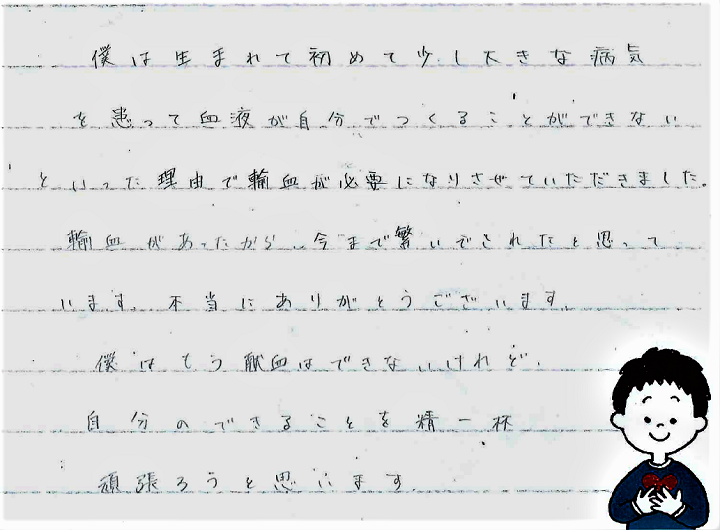 僕は生まれて初めて少し大きな病気
を患って血液が自分でつくることができない
といった理由で輸血が必要になりさせていただきました。
輸血があったから、今まで繋いでこれたと思って
います。本当にありがとうございます。
僕はもう献血はできないけれど、
自分のできることを精一杯
頑張ろうと思います。